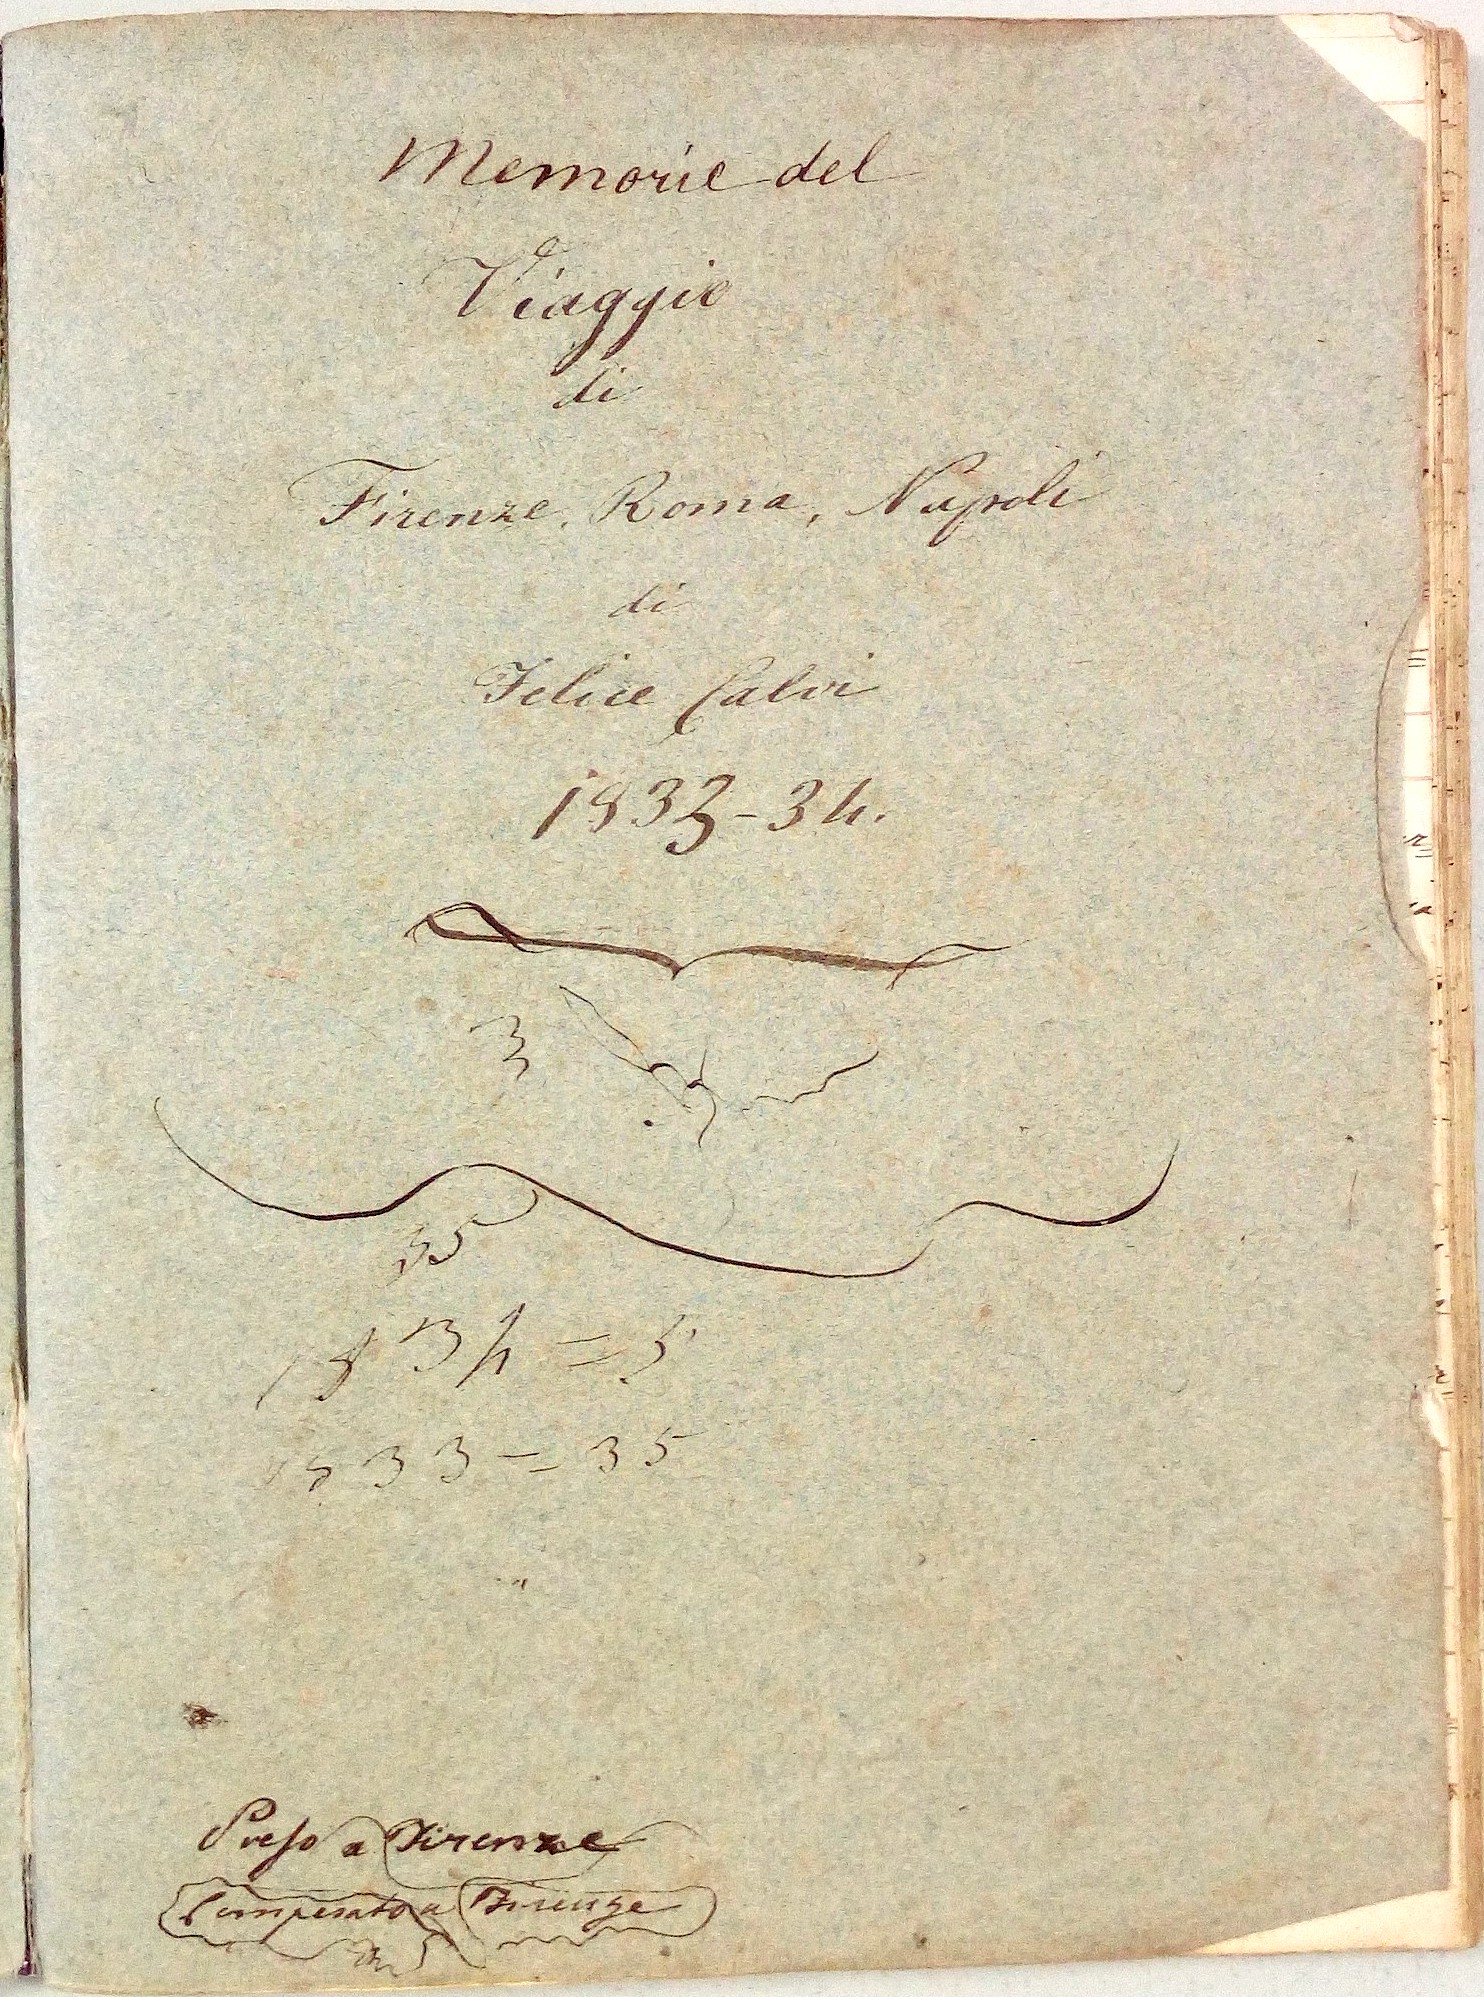 Memorie del
Viaggio
di
Firenze, Roma, Napoli
di
Felice Calvi
1833-34.
3
35
1834=5
1833=35
Preso a Firenze
Comperato a Firenze